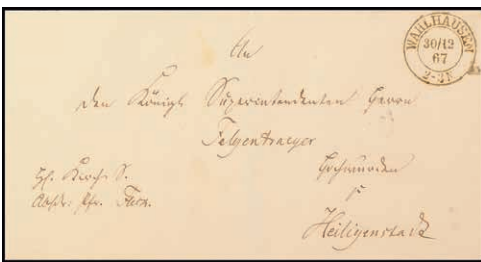 WAHLHAUSEN
30/12
67
2-3N
An
den Königl. Superintendenten Herrn
Felgentraeger
Hochwürden
Heiligenstadt